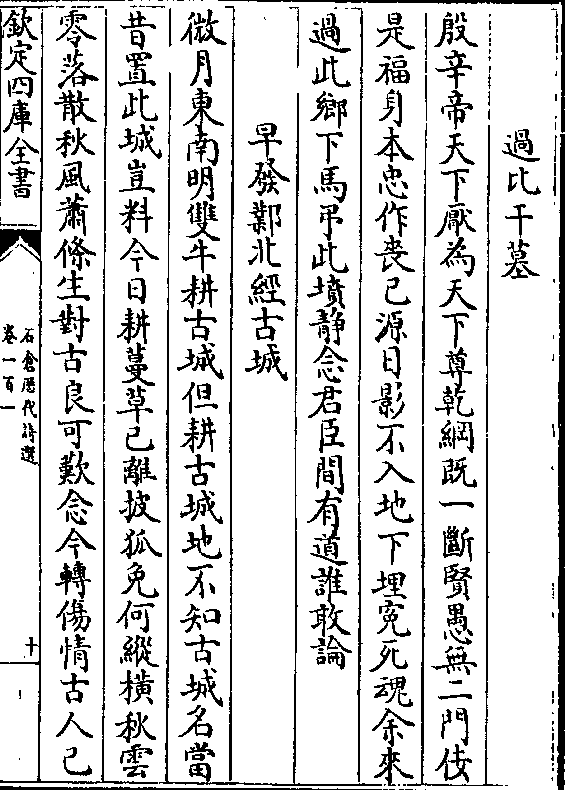 過比干墓
殷辛帝天下厭為天下尊乾綱既一斷賢愚無二門佞
是福身本忠作喪已源日影不入地下埋冤死魂余來
過此鄉下馬弔此墳静念君臣間有道誰敢論
早發鄴北經古城
微月東南明雙牛耕古城但耕古城地不知古城名當
昔置此城豈料今日耕蔓草已離披狐兔何縱橫秋雲
零落散秋風蕭條生對古良可歎念今轉傷情古人已
欽定四庫全書
石倉歴代詩選
卷一百一
十